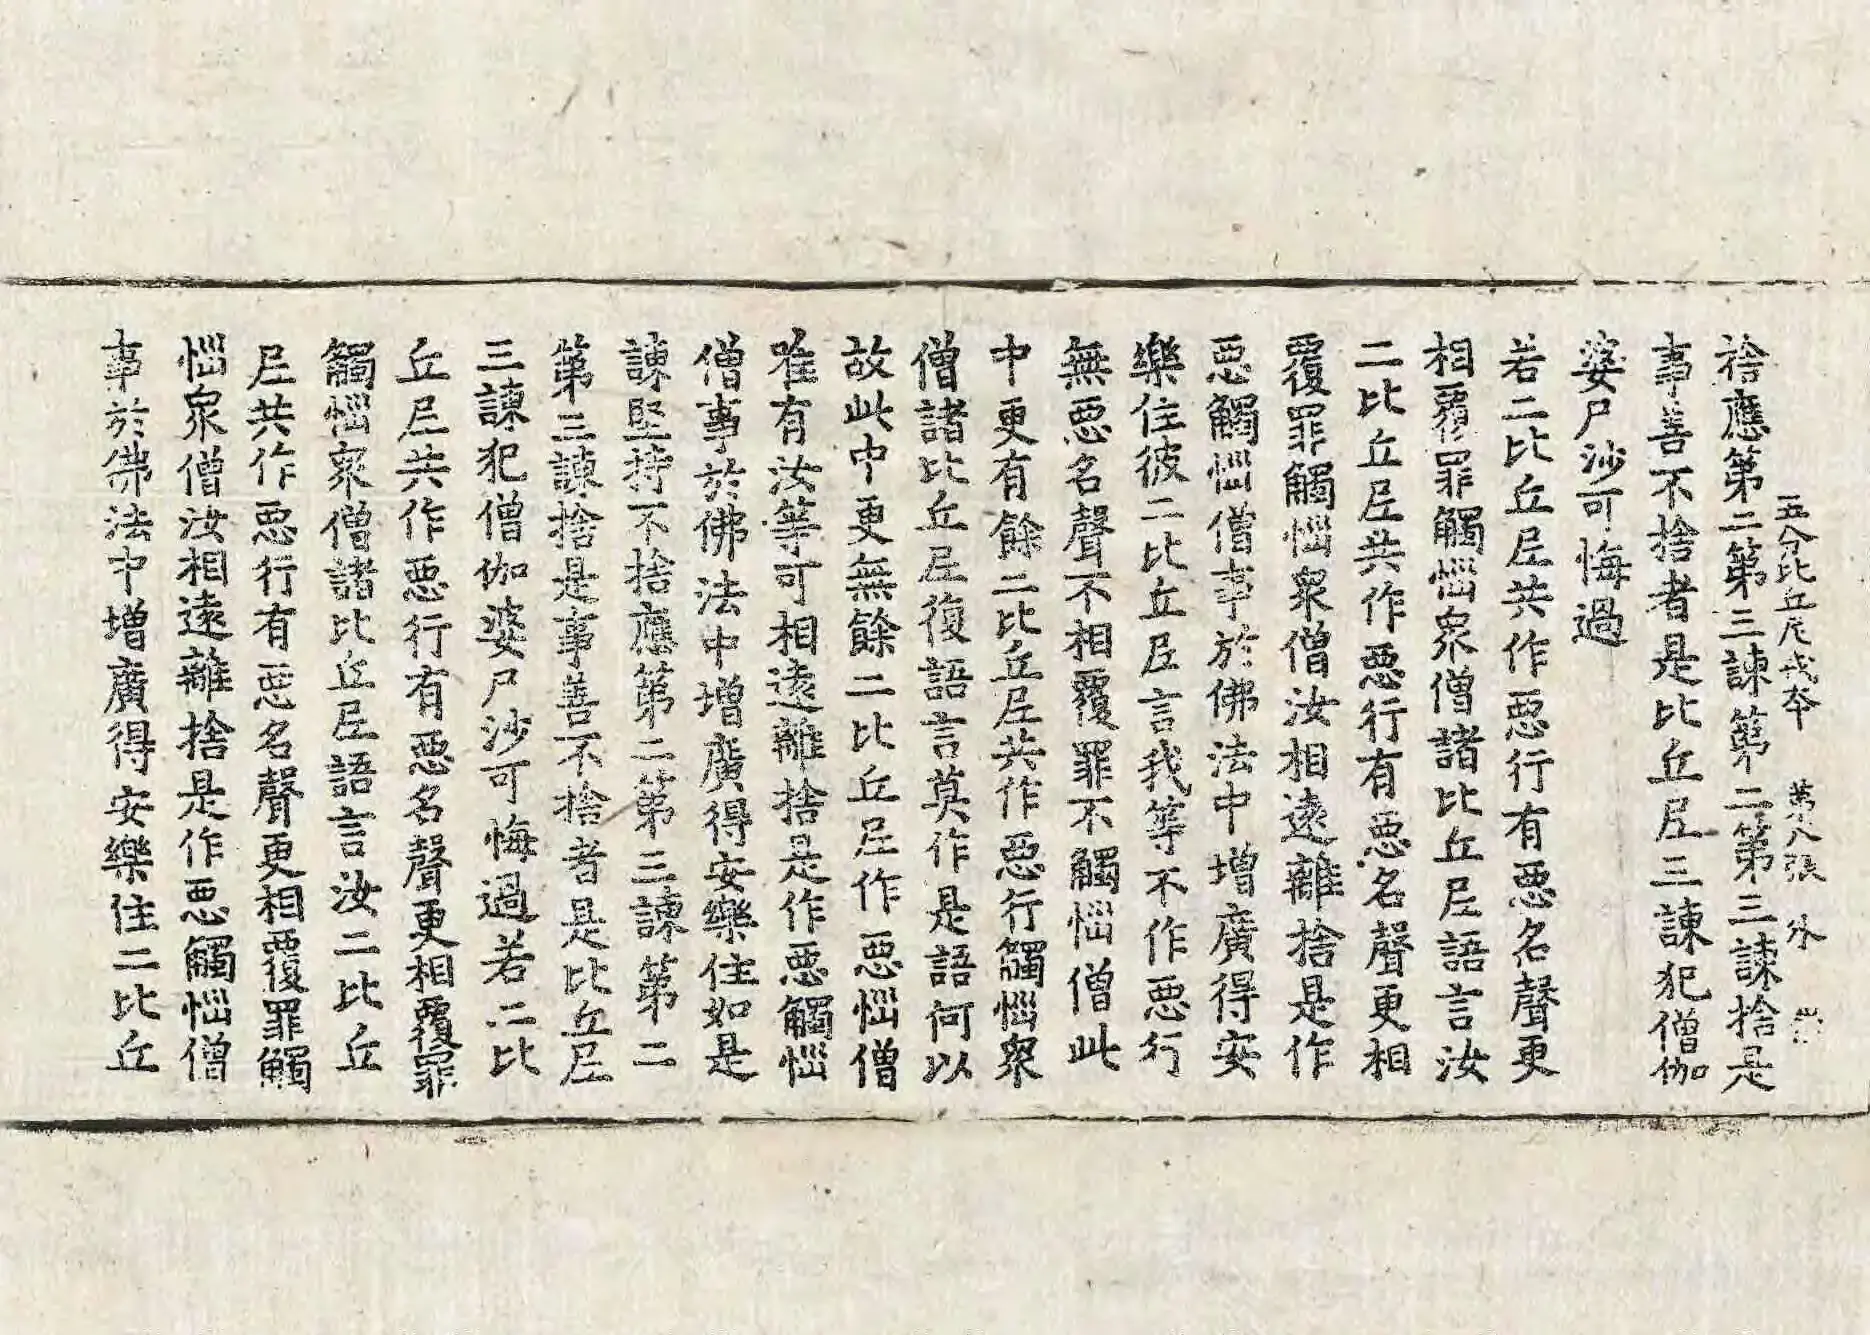 五分比丘尼戒本 第八張 外
捨應第二第三諫第二第三諫捨是
事善不捨者是比丘尼三諫犯僧伽
婆尸沙可悔過
若二比丘尼共作惡行有惡名聲更
相覆罪觸惱衆僧諸比丘尼語言汝
二比丘尼共作惡行有惡名聲更相
覆罪觸惱衆僧汝相遠離捨是作
惡觸惱僧事於佛法中增廣得安
樂住彼二比丘尼言我等不作惡行
無惡名聲不相覆罪不觸惱僧此
中更有餘二比丘尼共作惡行觸惱衆
僧諸比丘尼復語言莫作是語何以
故此中更無餘二比丘尼作惡惱僧
唯有汝等可相遠離捨是作惡觸惱
僧事於佛法中增廣得安樂住如是
諫堅持不捨應第二第三諫第二
第三諫捨是事善不捨者是比丘尼
三諫犯僧伽婆尸沙可悔過若二比
丘尼共作惡行有惡名聲更相覆罪
觸惱衆僧諸比丘尼語言汝二比丘
尼共作惡行有惡名聲更相覆罪觸
惱衆僧汝相遠離捨是作惡觸惱僧
事於佛法中增廣得安樂住二比丘